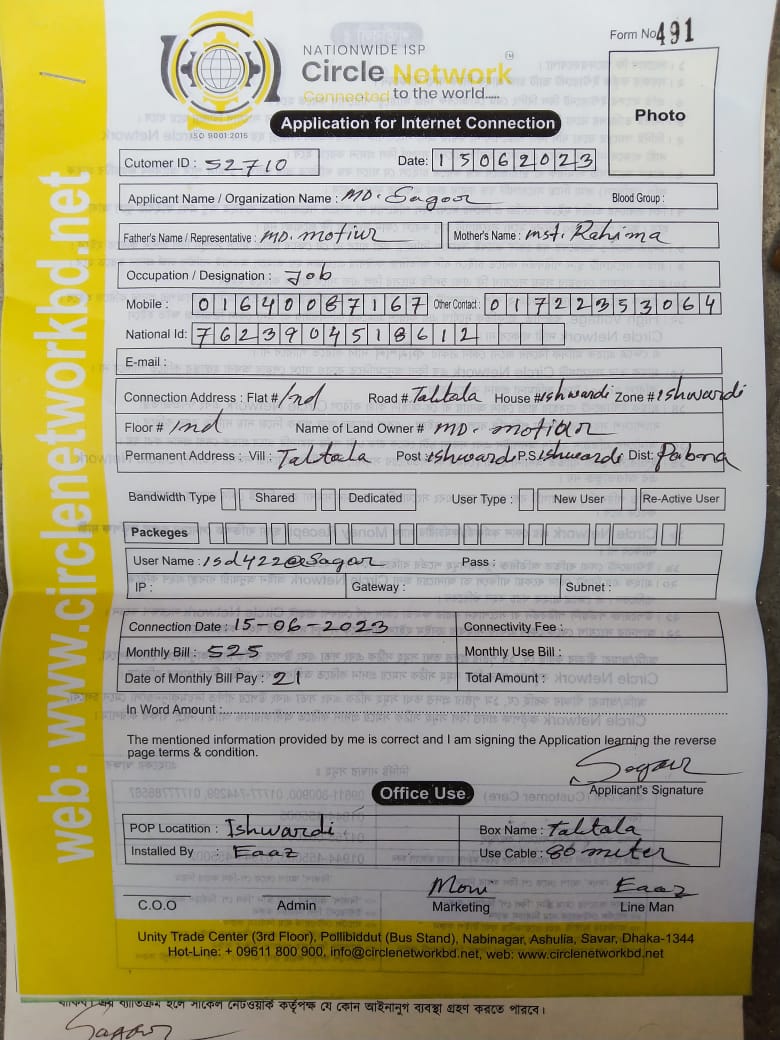 Form No 491
NATIONWIDE ISP
Circle Network
TM
Connected to the world.....
ISO 9001:2015
Photo
Application for Internet Connection
Cutomer ID : 52710 Date: 15062023
Applicant Name / Organization Name : MD. Sagor Blood Group :
Father's Name / Representative : MD. motiur Mother's Name : mst. Rahima
Occupation / Designation : Job
Mobile : 01640087167 Other Contact : 01722353064
National Id: 7623904518612
E-mail :
Connection Address : Flat # 2nd Road # Taltala House # Ishwardi Zone # Ishwardi
Floor # 2nd Name of Land Owner # MD. motiur
Permanent Address : Vill : Taltala Post : Ishwardi P.S Ishwardi Dist: Pabna
Bandwidth Type Shared Dedicated User Type : New User Re-Active User
Packeges
User Name : isd422@Sagar Pass :
IP : Gateway : Subnet :
Connection Date : 15-06-2023 Connectivity Fee :
Monthly Bill : 525 Monthly Use Bill :
Date of Monthly Bill Pay : 21 Total Amount :
In Word Amount :
The mentioned information provided by me is correct and I am signing the Application learning the reverse
page terms & condition.
Sagor
Applicant's Signature
Office Use
POP Locatition : Ishwardi Box Name : Taltala
Installed By : Eaaz Use Cable : 80 meter
Moni Eaaz
C.O.O Admin Marketing Line Man
Unity Trade Center (3rd Floor), Pollibiddut (Bus Stand), Nabinagar, Ashulia, Savar, Dhaka-1344
Hot-Line: + 09611 800 900, info@circlenetworkbd.net, web: www.circlenetworkbd.net
web: www.circlenetworkbd.net
ব্যতিক্রম হলে সার্কেল নেটওয়ার্ক কর্তৃপক্ষ যে কোন আইনানুগ ব্যবস্থা গ্রহণ করতে পারবে।
Sagor